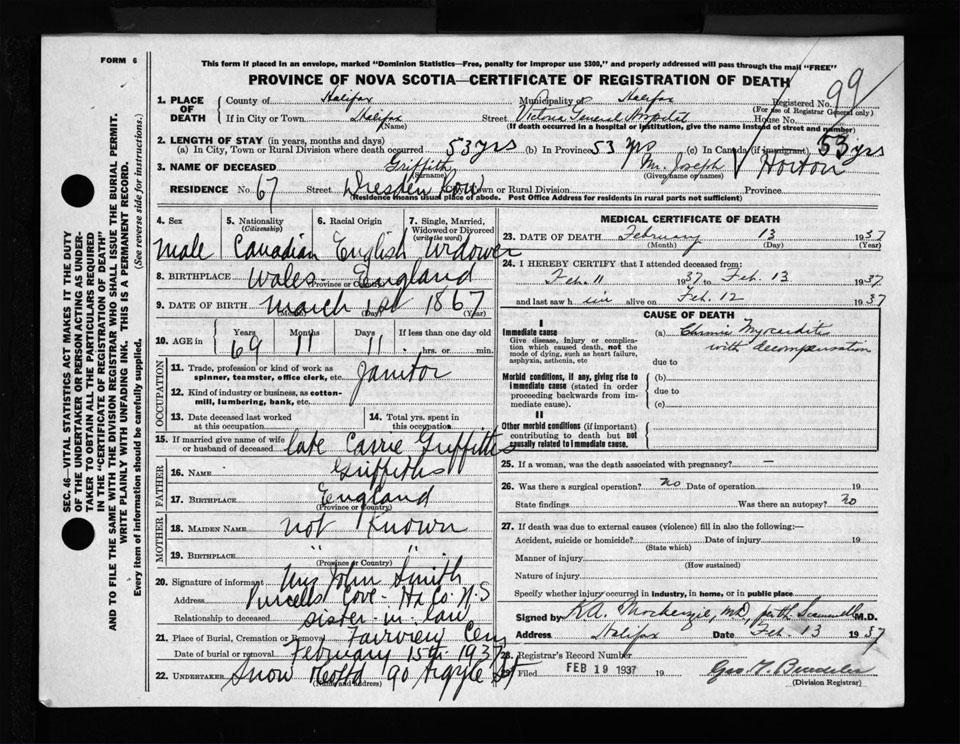 FORM 6
This form if placed in an envelope, marked "Dominion Statistics—Free, penalty for improper use $300," and properly addressed will pass through the mail "FREE"
PROVINCE OF NOVA SCOTIA—CERTIFICATE OF REGISTRATION OF DEATH
1. PLACE OF DEATH County of Halifax Municipality of Halifax Registered No. 99
(For use of Registrar General only)
If in City or Town Halifax Street Victoria General Hospital House No.
(Name) (If death occurred in a hospital or institution, give the name instead of street and number)
2. LENGTH OF STAY (in years, months and days)
(a) In City, Town or Rural Division where death occurred 53 yrs (b) In Province 53 yrs (c) In Canada (if immigrant) 53 yrs
3. NAME OF DECEASED Griffith Mr. Joseph Horton
(Surname) (Given name or names)
RESIDENCE No. 67 Street Dresden Row Town or Rural Division Province
(Residence means usual place of abode. Post Office Address for residents in rural parts not sufficient)
4. Sex 5. Nationality 6. Racial Origin 7. Single, Married, Widowed or Divorced
(Citizenship) (write the word)
male Canadian English Widower
8. BIRTHPLACE Wales- England
(Province or Country)
9. DATE OF BIRTH March 1st 1867
(Day) (Year)
10. AGE in Years Months Days If less than one day old
69 11 11 hrs. or min.
11. Trade, profession or kind of work as spinner, teamster, office clerk, etc. Janitor
12. Kind of industry or business, as cotton-mill, lumbering, bank, etc.
OCCUPATION
13. Date deceased last worked at this occupation
14. Total yrs. spent in this occupation
15. If married give name of wife or husband of deceased late Carrie Griffiths
FATHER
16. NAME Griffiths
17. BIRTHPLACE England
(Province or Country)
MOTHER
18. MAIDEN NAME not Known
19. BIRTHPLACE " "
(Province or Country)
20. Signature of informant Mrs John Smith
Address Purcells Cove- Hx Co. N.S
Relationship to deceased sister-in-law
21. Place of Burial, Cremation or Removal Fairview Cem
Date of burial or removal February 15th 1937
22. UNDERTAKER Snow & Co Ltd 90 Argyle St
(Name and address)
MEDICAL CERTIFICATE OF DEATH
23. DATE OF DEATH February 13 1937
(Month) (Day) (Year)
24. I HEREBY CERTIFY that I attended deceased from:
Feb. 11 1937 to Feb. 13 1937
and last saw h im alive on Feb. 12 1937
CAUSE OF DEATH
I
Immediate cause (a) Chronic Myocarditis
Give disease, injury or complication which caused death, not the mode of dying, such as heart failure, asphyxia, asthenia, etc
with decompensation
due to
Morbid conditions, if any, giving rise to immediate cause (stated in order proceeding backwards from immediate cause).
(b)
due to
(c)
II
Other morbid conditions (if important) contributing to death but not causally related to immediate cause.
25. If a woman, was the death associated with pregnancy? —
26. Was there a surgical operation? no Date of operation 19
State findings Was there an autopsy? no
27. If death was due to external causes (violence) fill in also the following:—
Accident, suicide or homicide? Date of injury 19
(State which)
Manner of injury
(How sustained)
Nature of injury
Specify whether injury occurred in industry, in home, or in public place
Signed by K.A. MacKenzie, MD, per M.D.
Address Halifax Date Feb. 13 1937
28. Registrar's Record Number
29. Filed FEB 19 1937 19
(Division Registrar)
SEC. 46—VITAL STATISTICS ACT MAKES IT THE DUTY
OF THE UNDERTAKER OR PERSON ACTING AS UNDER-
TAKER TO OBTAIN ALL THE PARTICULARS REQUIRED
IN THE "CERTIFICATE OF REGISTRATION OF DEATH"
AND TO FILE THE SAME WITH THE DIVISION REGISTRAR WHO SHALL ISSUE THE BURIAL PERMIT.
WRITE PLAINLY WITH UNFADING INK. THIS IS A PERMANENT RECORD.
Every item of information should be carefully supplied. (See reverse side for instructions.)